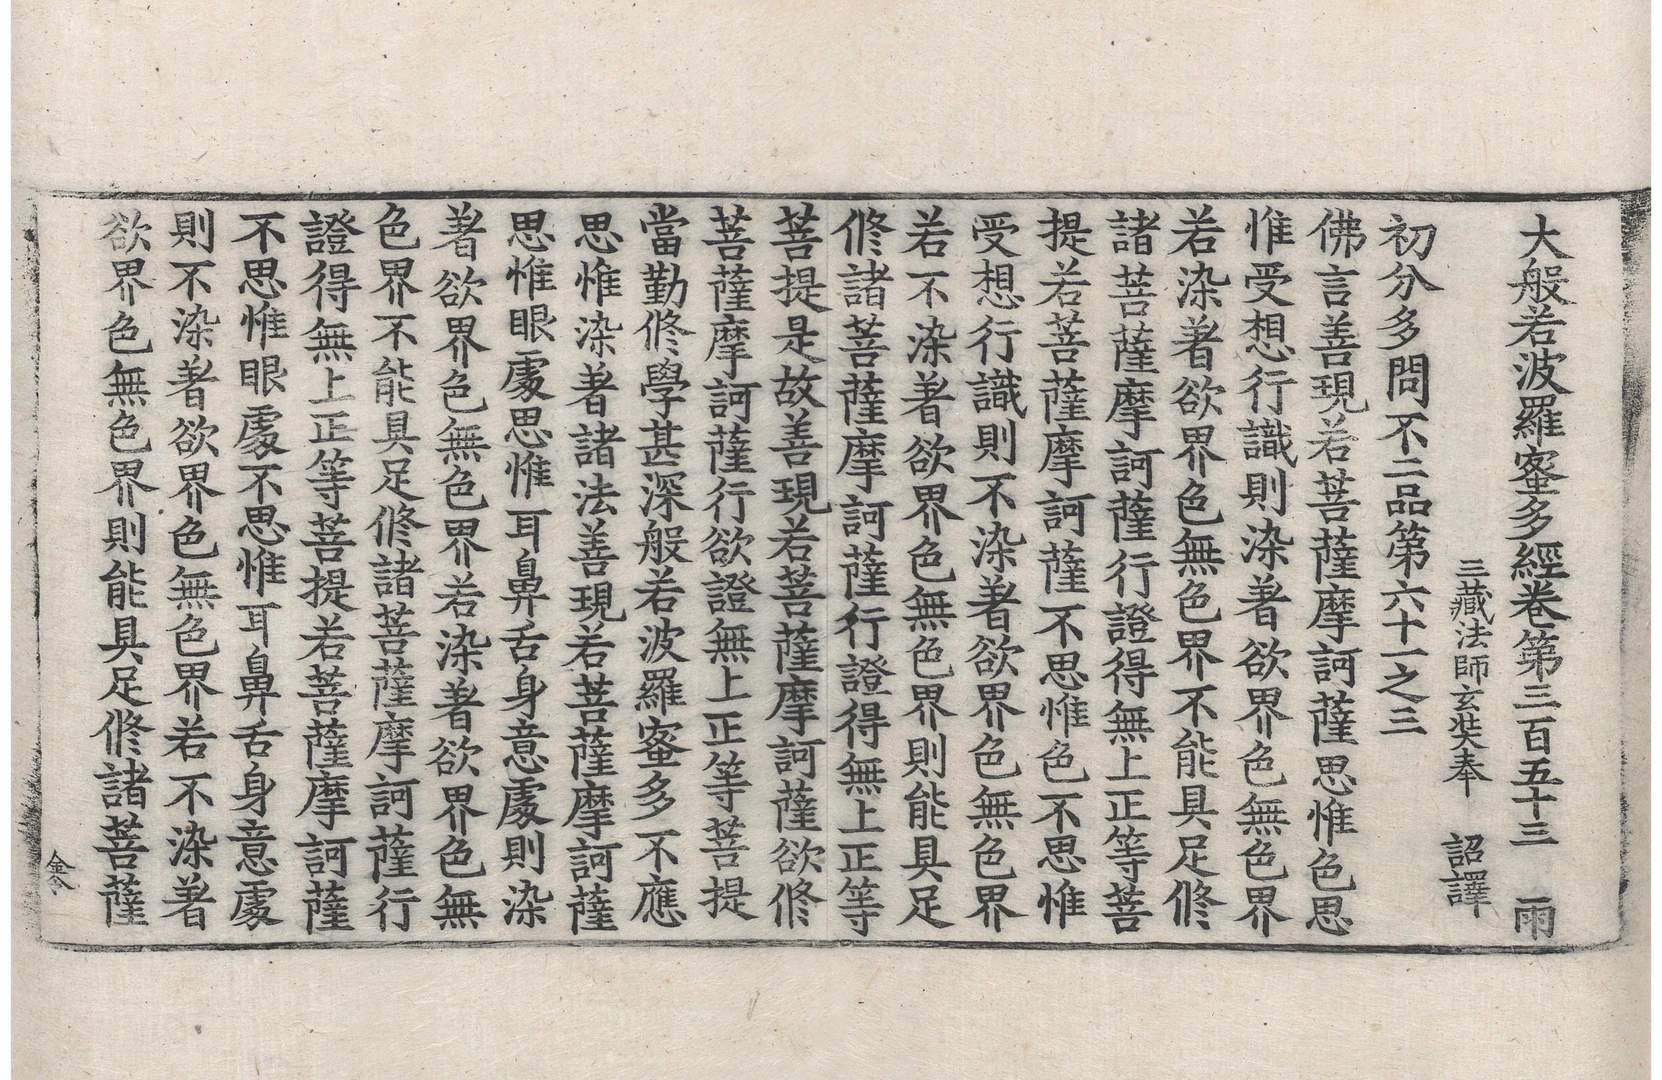 大般若波羅蜜多經卷第三百五十三　雨
三藏法師玄奘奉　詔譯
初分多問不二品第六十一之三
佛言善現若菩薩摩訶薩思惟色思
惟受想行識則染著欲界色無色界
若染著欲界色無色界不能具足修
諸菩薩摩訶薩行證得無上正等菩
提若菩薩摩訶薩不思惟色不思惟
受想行識則不染著欲界色無色界
若不染著欲界色無色界則能具足
修諸菩薩摩訶薩行證得無上正等
菩提是故善現若菩薩摩訶薩欲修
菩薩摩訶薩行欲證無上正等菩提
當勤修學甚深般若波羅蜜多不應
思惟染著諸法善現若菩薩摩訶薩
思惟眼處思惟耳鼻舌身意處則染
著欲界色無色界若染著欲界色無
色界不能具足修諸菩薩摩訶薩行
證得無上正等菩提若菩薩摩訶薩
不思惟眼處不思惟耳鼻舌身意處
則不染著欲界色無色界若不染著
欲界色無色界則能具足修諸菩薩